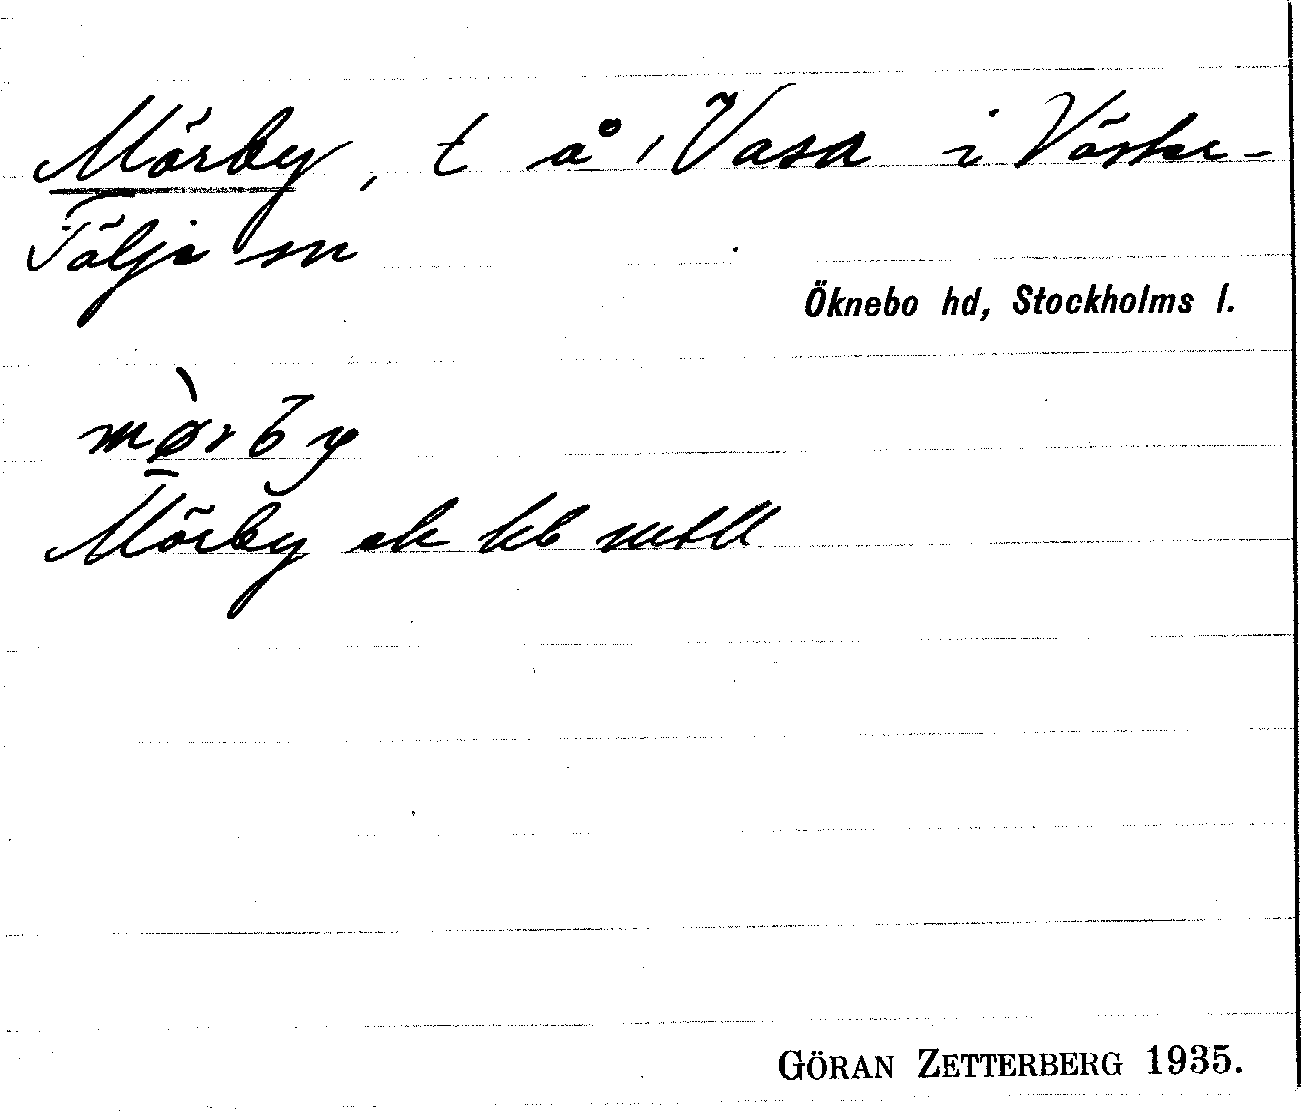 Mörby, t å, Vasa i Väster-
Tälje sn
Öknebo hd, Stockholms l.
mø̀rby
Mörby ek kb mtll
GÖRAN ZETTERBERG 1935.